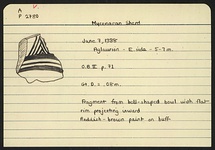 A
P 2780
Mycenaean Sherd
June 3, 1938
Agora - E. side - 5-7 m.
O.B. II p. 71
Gr. D. : .08 m.
Fragment from bell-shaped bowl with flat
rim projecting inward
Reddish-brown paint on buff